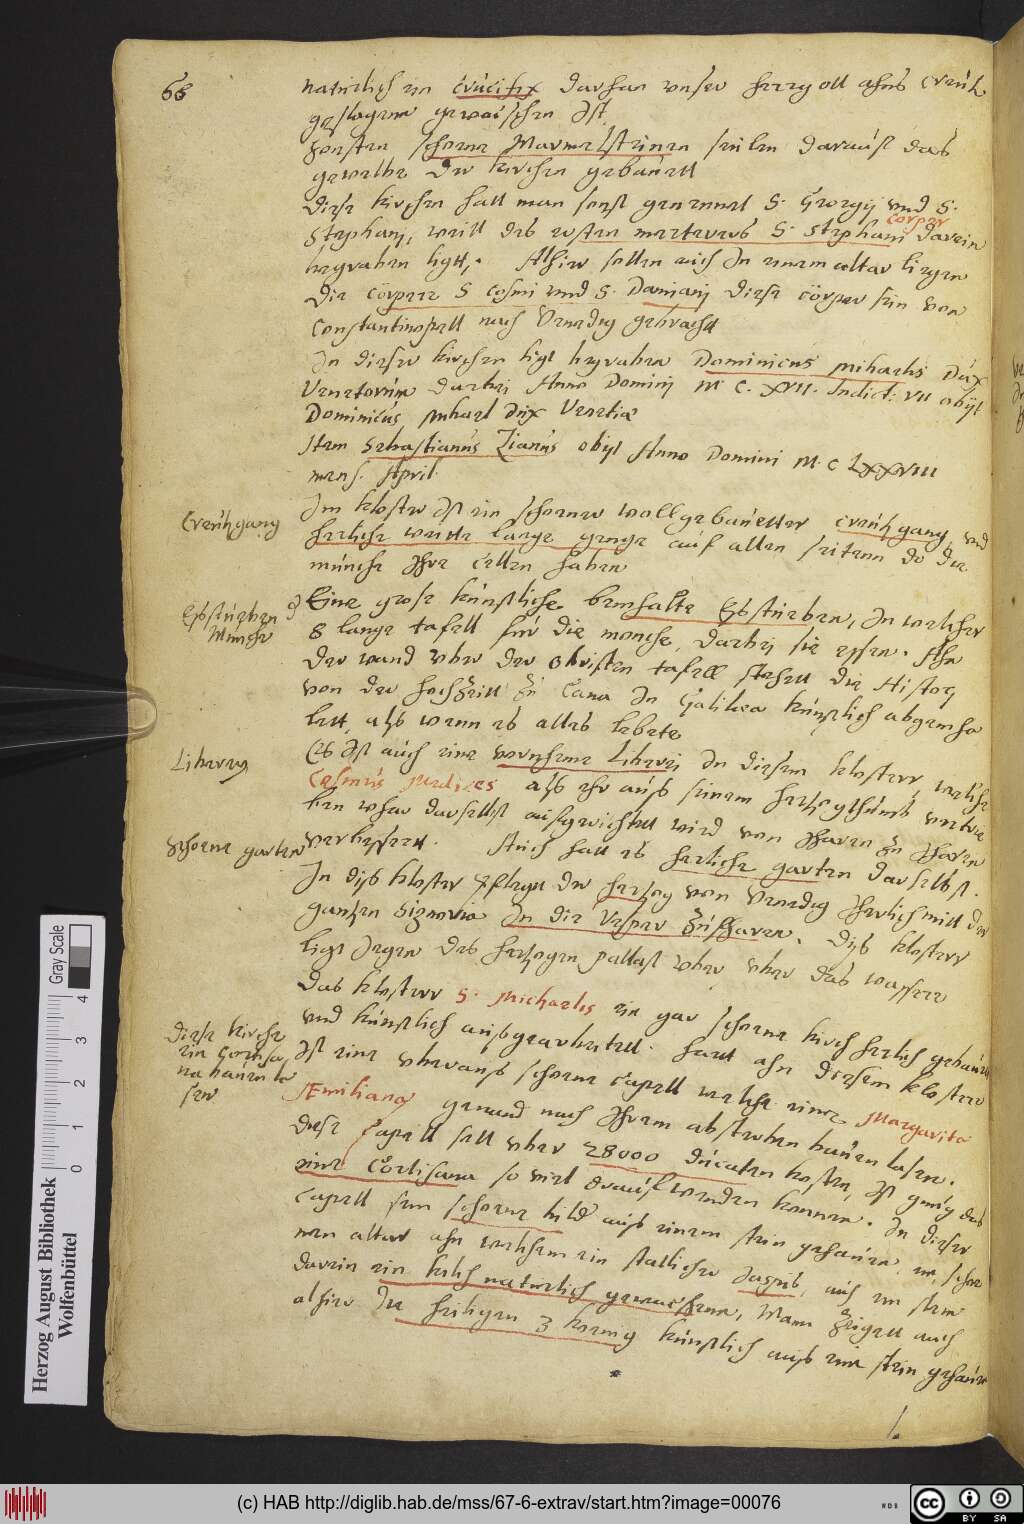 66
naturlich ein Crucifix daran unser Herrgott ahns Creutz
geslagenn gewachsen Ist
Fornen schoene Marmelsteinen seulen darauf das
gewelbe der kirchen gebauett
Diese kirchen hatt man sonst genennet S. Georgij und S.
Stephanj, weill des ersten marterers S. Stephani Corper darein
begraben ligtt, Alhier sollen auch In einem altar liegen
Die Cörperr S Cosmi und S. Damianj diese cörper sein von
Constantinopell nach Venedig gebracht
In dieser kirchen ligt begraben Dominicus Mihaelis Dux
Venetorum darbei Anno Dominj M C. XVII. Indict. VII obijt
Dominicus Mihael dux Venetiae
Item Sebastianus Zianus obijt Anno Domini M. C LXXVIII
mens. April.
Creutzgang
Im kloster Ist ein schoener wollgebauetter creutzgang, und
herliche weitte lange genge auf allen seitenn do die
münche Ihre Cellen haben
Esstueben der
Münche
Eine grose künstliche bemhalte Esstueben, In welcher
8 lange tafell für die monche, darbej sie essen. Ahn
der wand uber der obristen tafell stehett die Histori
von der hochzeitt zu Cana In Galilaea künstlich abgemha
lett, alss wenn es alles lebete
Liberey
Es Ist auch eine vornheme Liberej In diesem klosterr, welche
Cosmus Medices alss ehr auss seinem hertzogthumb vertrie
ben wher daselbst aufgerichtet wird von Iharen zu Iharen
Schoene garten
verbessertt. Auch hatt es herliche garten darselbst.
In diss kloster pflegtt der hertzog von Venedig Iherlich mitt der
gantzen Signoria In die Vesper zu fharen. Diss klosterr
ligt Jegen des hertzogen pallast uber, uber das wasserr
Das klosterr S. Michaelis ein gar schoene kirch herlich gebauett
und künstlich aussgearbeitett. hartt ahn diesem klosterr
Diese kirche
ein Cortisa
na bauen la
sen
Ist eine uberauss schoene Capell welche eine Margarita
AEmiliana genand nach Ihrem absterben bauen lasen.
Diese Capell soll uber 28000 Ducaten kosten, Ist gnug das
eine Cortisana so viel drauf wenden koennen. In dieser
Capell sein schoene bilder auss einem stein gehauen, ein schoe
nen altar ahn welchem ein statlicher Jaspis, auch ein stein
darein ein kelch naturlich gewachsenn, Mann zeigett auch
alhier die heiligen 3 koenig künstlich auss eine stein gehauen
Gray Scale
0 1 2 3 4
Herzog August Bibliothek
Wolfenbüttel
(c) HAB http://diglib.hab.de/mss/67-6-extrav/start.htm?image=00076
WDB
CC BY SA